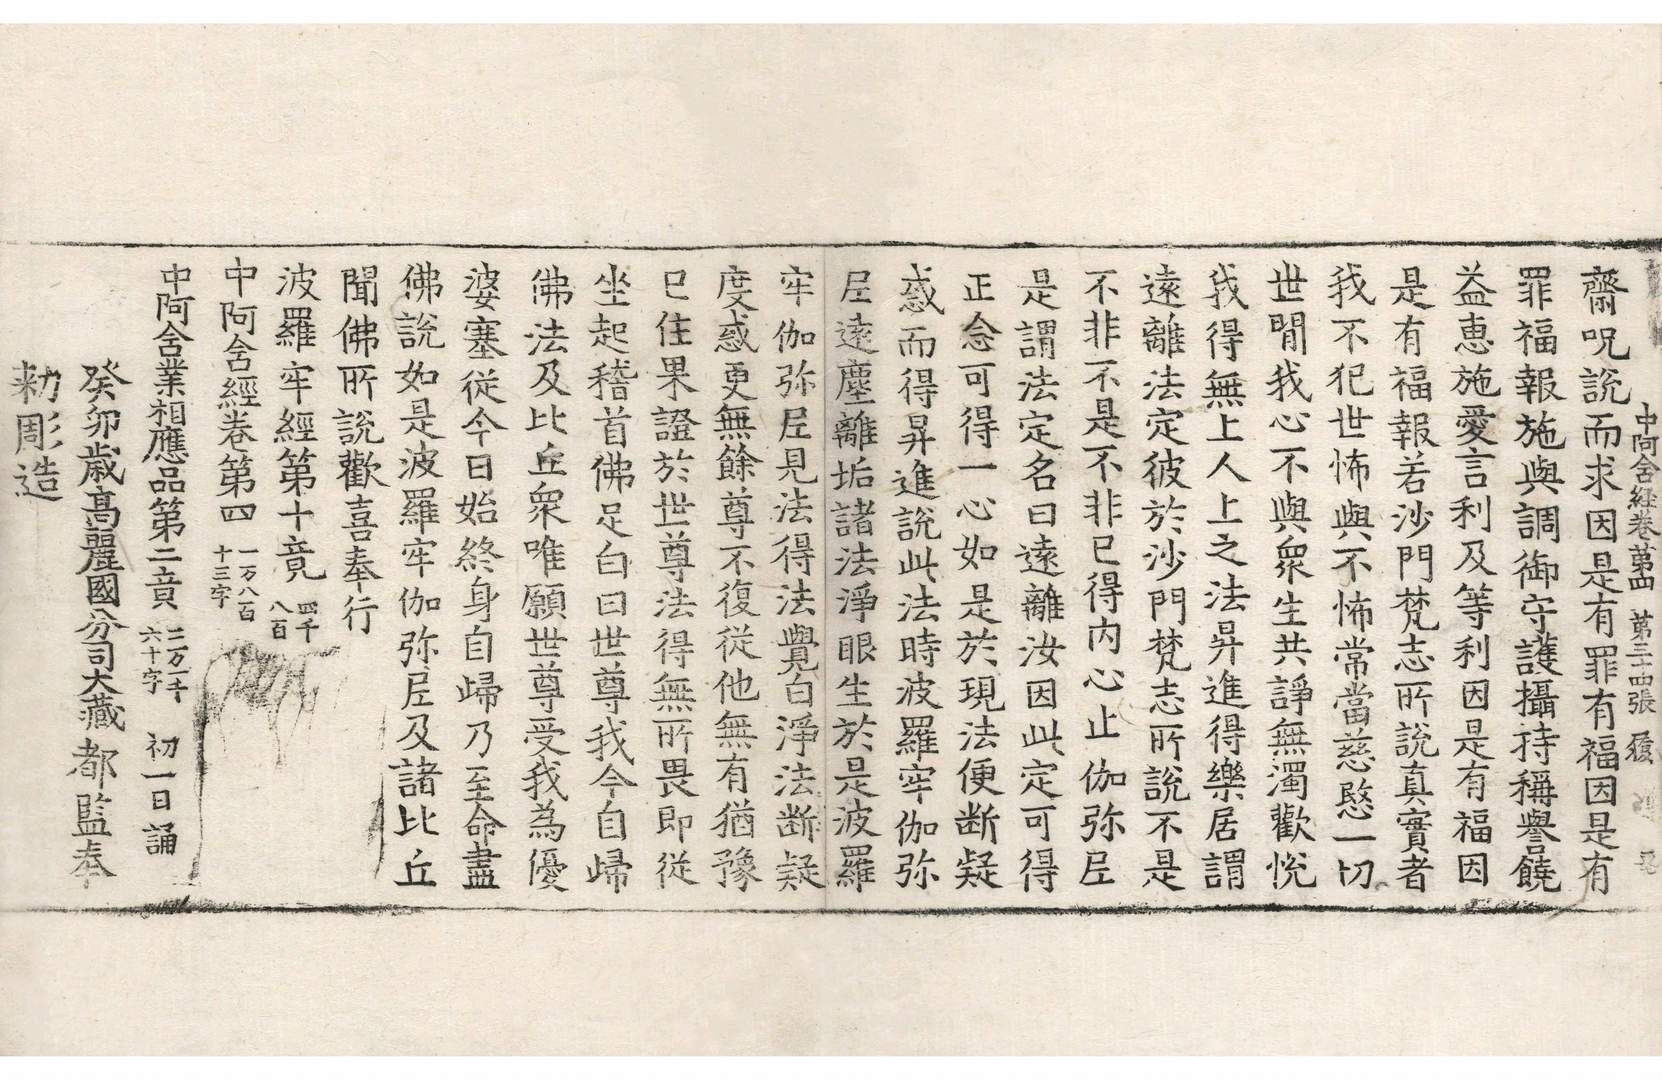 中阿含経卷苐四　第三十四張　履
齋呪說而求因是有罪有福因是有
罪福報施與調御守護攝持稱譽饒
益惠施愛言利及等利因是有福因
是有福報若沙門梵志所說真實者
我不犯世怖與不怖常當慈愍一切
世間我心不與衆生共諍無濁歡恱
我得無上人上之法昇進得樂居謂
遠離法定彼於沙門梵志所說不是
不非不是不非已得内心止伽弥尼
是謂法定名曰遠離汝因此定可得
正念可得一心如是於現法便断疑
惑而得昇進說此法時波羅牢伽弥
尼遠塵離垢諸法淨眼生於是波羅
牢伽弥尼見法得法覺白淨法断疑
度惑更無餘尊不復從他無有猶豫
已住果證於世尊法得無所畏即從
坐起稽首佛足白曰世尊我今自歸
佛法及比丘衆唯願世尊受我為優
婆塞從今日始終身自歸乃至命盡
佛說如是波羅牢伽弥尼及諸比丘
聞佛所說歡喜奉行
波羅牢經第十竟　四千八百
中阿含經卷第四　一万八百十三字
中阿含業相應品第二竟　二万二千六十字　初一日誦
癸卯歲髙麗國分司大藏都監奉
勅彫造